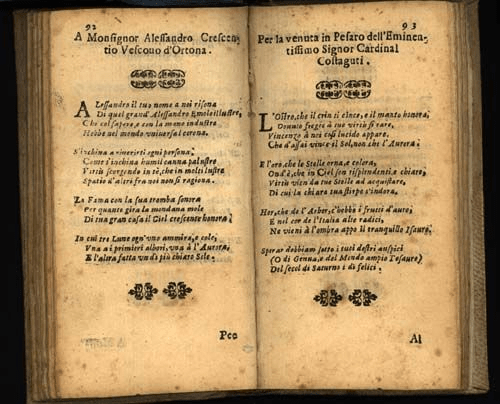 92
A Monsignor Alessandro Crescen-
tio Vescouo d'Ortona.
ALessandro il tuo nome a noi risona
Di quel grand' Alessandro Emolo illustre,
Che col sapere, e con la mano industre
Hebbe nel mondo vniuersal corona.
S'inchina a riuerirti ogni persona;
Come s'inchina humil canna palustre
Virtù scorgendo in tè, che in molti lustre
Spatio d'altri fra noi non si ragiona.
La Fama con la sua tromba sonora
Per quanto gira la mondana mole
Di tua gran casa il Ciel crescente honora;
In cui tre Lune ogn'vno ammira, e cole,
Vna a i primieri albori, vna à l'Aurora,
E l'altra fatta vn dì più chiaro Sole.
Per
93
Per la venuta in Pesaro dell'Eminen-
tissimo Signor Cardinal
Costaguti.
L'Ostro, che il crin ti cince, e il manto honora,
Donuto fregio à tue virtù sì rare,
Vincengo à noi così lucido appare,
Che d'assai vince il Sol, non che l'Aurora;
E l'oro, che le Stelle orna, e colora,
Ond'è, che in Ciel sen risplendenti, e chiare,
Virtù vien da tue Stelle ad acquistare,
Di cui la chiara tua stirpe s'indora.
Hor, che de l'Arbor, c'hebbe i frutti d'auro,
E nel cor de l'Italia alte radici,
Ne vieni à l'ombra appo il tranquillo Isauro;
Sperar debbiam sotto i tuoi destri auspici
(O di Genua, e del Mondo ampio Tesauro)
Del secol di Saturno i dì felici.
Al